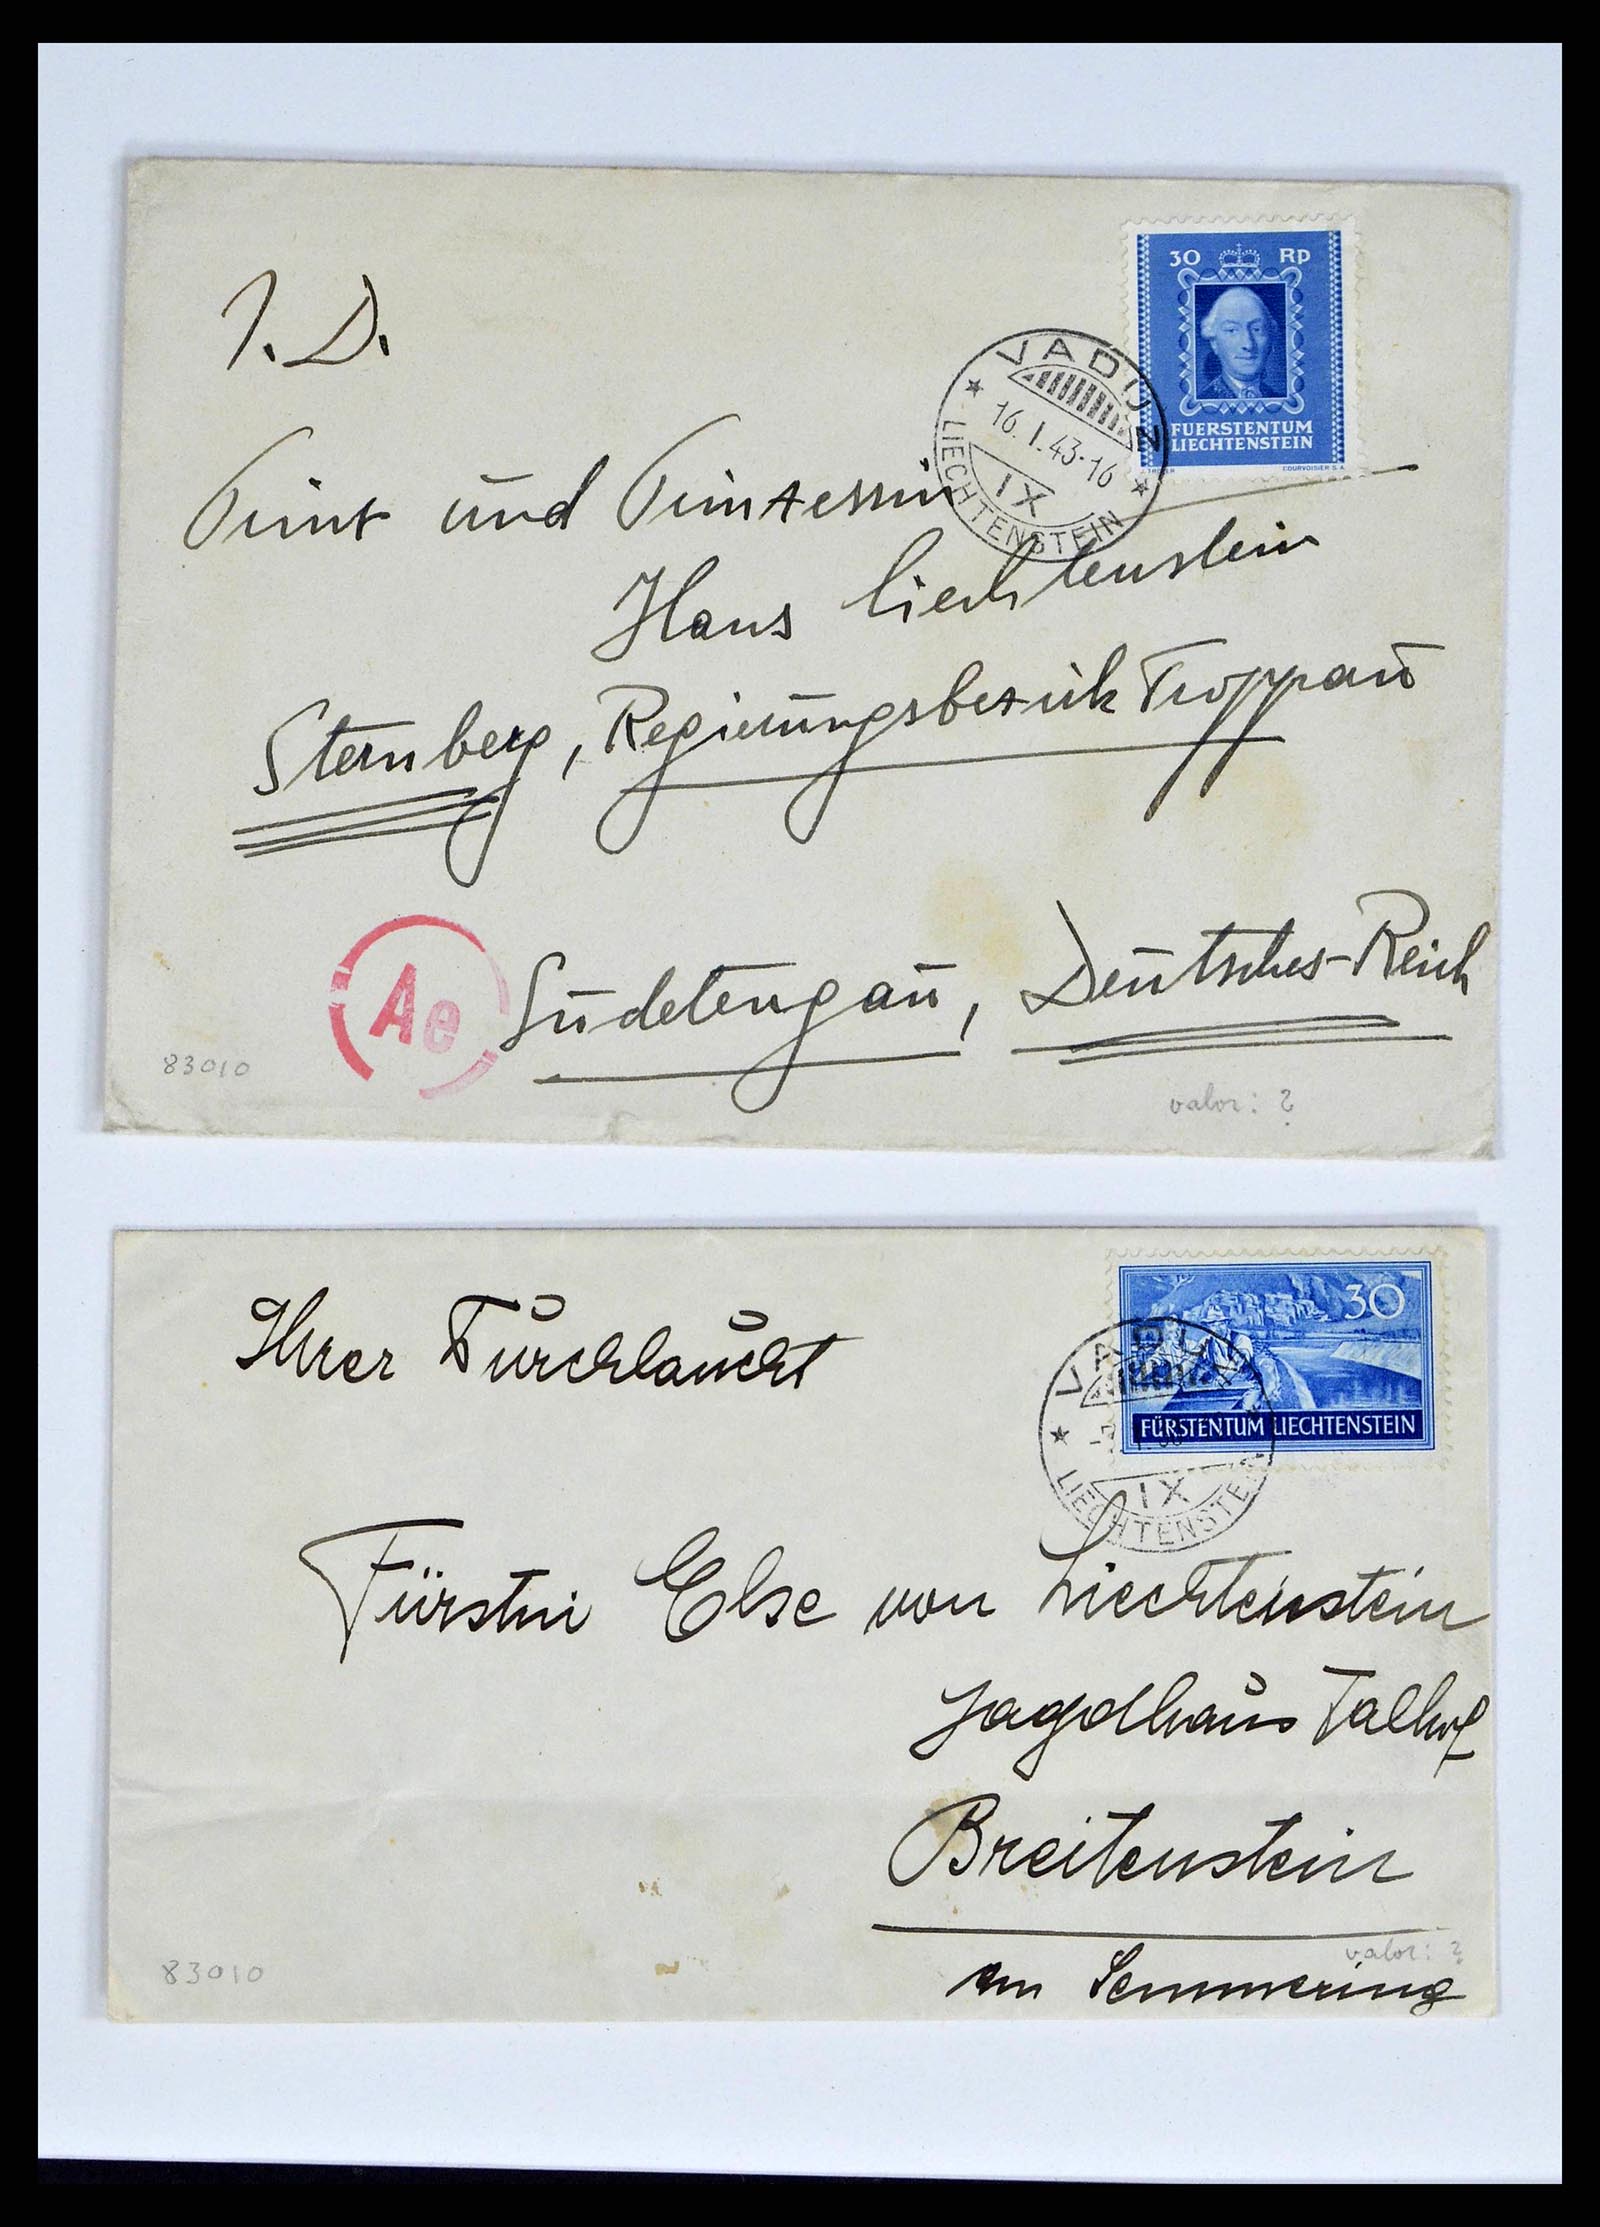 30 Rp
FUERSTENTUM
LIECHTENSTEIN
COURVOISIER S.A.
VADUZ
16.I.43-16
IX
LIECHTENSTEIN
I. D.
Prinz und Prinzessin
Hans Liechtenstein
Sternberg, Regierungsbezirk Troppau
Sudetengau, Deutsches-Reich
Ae
83010
valor: ?
30
FÜRSTENTUM LIECHTENSTEIN
VADUZ
IX
LIECHTENSTEIN
Ihrer Durchlaucht
Fürstin Else von Liechtenstein
Jagdhaus Talhof
Breitenstein
am Semmering
83010
valor: ?